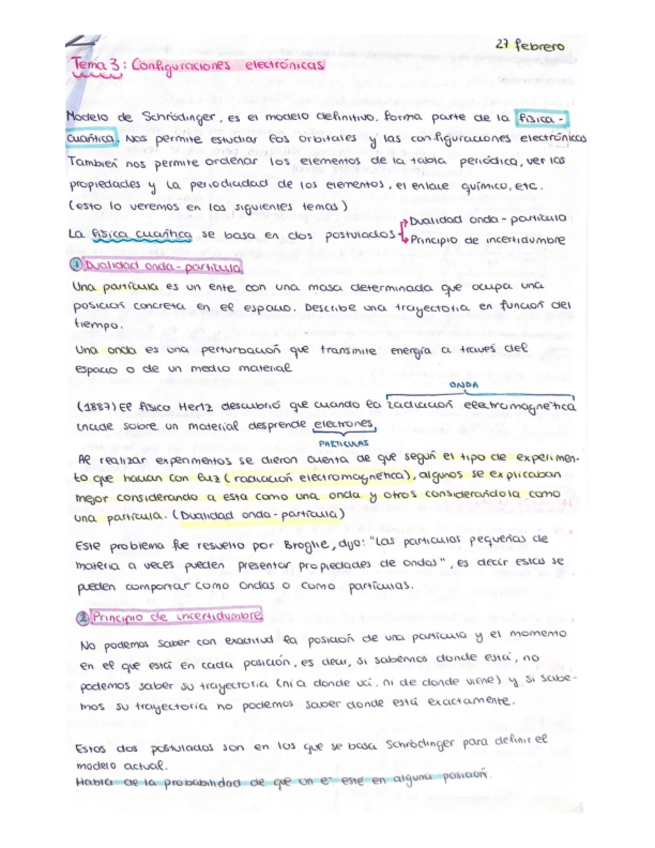 27 febrero
Tema 3: Configuraciones electrónicas
Modelo de Schrödinger, es el modelo definitivo. Forma parte de la física-
cuántica. Nos permite estudiar los orbitales y las configuraciones electrónicas
También nos permite ordenar los elementos de la tabla periódica, ver las
propiedades y la periodicidad de los elementos, el enlace químico, etc.
(esto lo veremos en los siguientes temas)
La física cuántica se basa en dos postulados
Dualidad onda-partícula
Principio de incertidumbre
① Dualidad onda-partícula
Una partícula es un ente con una masa determinada que ocupa una
posición concreta en el espacio. Describe una trayectoria en función del
tiempo.
Una onda es una perturbación que transmite energía a través del
espacio o de un medio material
ONDA
(1887) El físico Hertz descubrió que cuando la radiación electromagnética
incide sobre un material desprende electrones,
PARTÍCULAS
Al realizar experimentos se dieron cuenta de que según el tipo de experimen-
to que hacían con luz (radiación electromagnética), algunos se explicaban
mejor considerando a esta como una onda y otros considerándola como
una partícula. (Dualidad onda-partícula)
Este problema fue resuelto por Broglie, dijo: "Las partículas pequeñas de
materia a veces pueden presentar propiedades de ondas", es decir estas se
pueden comportar como ondas o como partículas.
② Principio de incertidumbre
No podemos saber con exactitud la posición de una partícula y el momento
en el que está en cada posición, es decir, si sabemos donde está, no
podemos saber su trayectoria (ni a donde va, ni de donde viene) y si sabe-
mos su trayectoria no podemos saber donde está exactamente.
Estos dos postulados son en los que se basa Schrödinger para definir el
modelo actual.
Habla de la probabilidad de que un e⁻ esté en alguna posición.